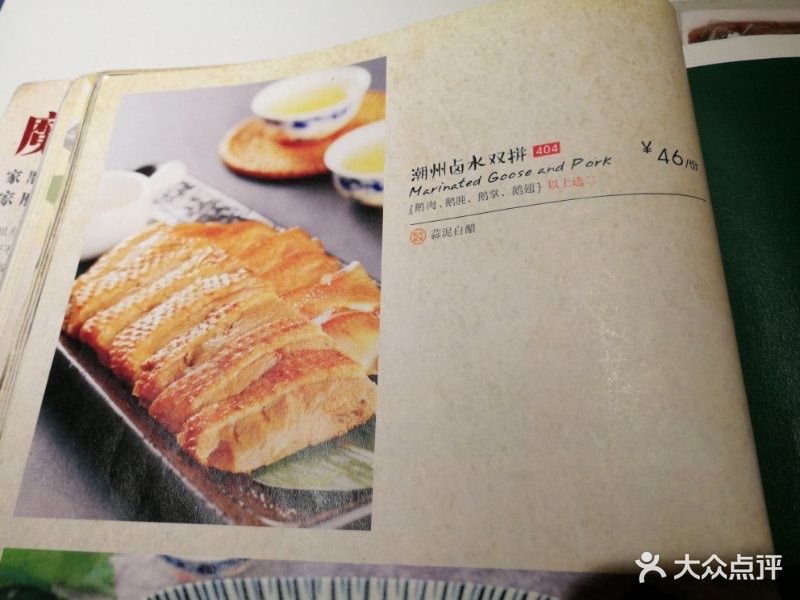 潮州卤水双拼 404
¥46/份
Marinated Goose and Pork
{鹅肉、鹅肫、鹅掌、鹅翅} 以上选二
蒜泥白醋
家
家
大众点评